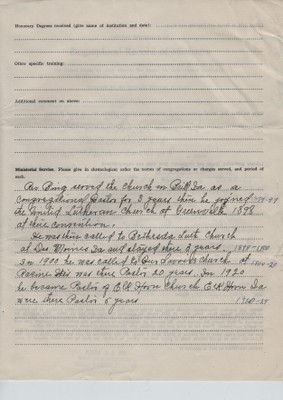 Honorary Degrees received (give name of institution and date):
Other specific training:
Additional comment on above:
Ministerial Service. Please give in chronological order the names of congregations or charges served, and period of each.
Rev Bing served the Church in Ia as a
Congregational Pastor for 3 years then he joined
the United Lutheran Church at Greenville 1898
at their convention.
He was then called to Bethesda Luth Church
at Des Moines Ia and stayed there 3 years. 1898-1900
In 1900 he was called to Our Saviors church at
Racine Wis was there Pastor 20 years. In 1920
he became Pastor of Elk Horn Church Elk Horn Ia
were there Pastor 5 years 1920-25